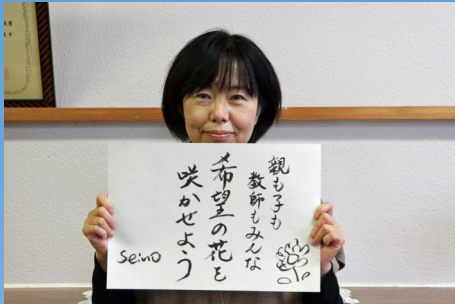 親も子も
教師もみんな
希望の花を
咲かせよう
Seino